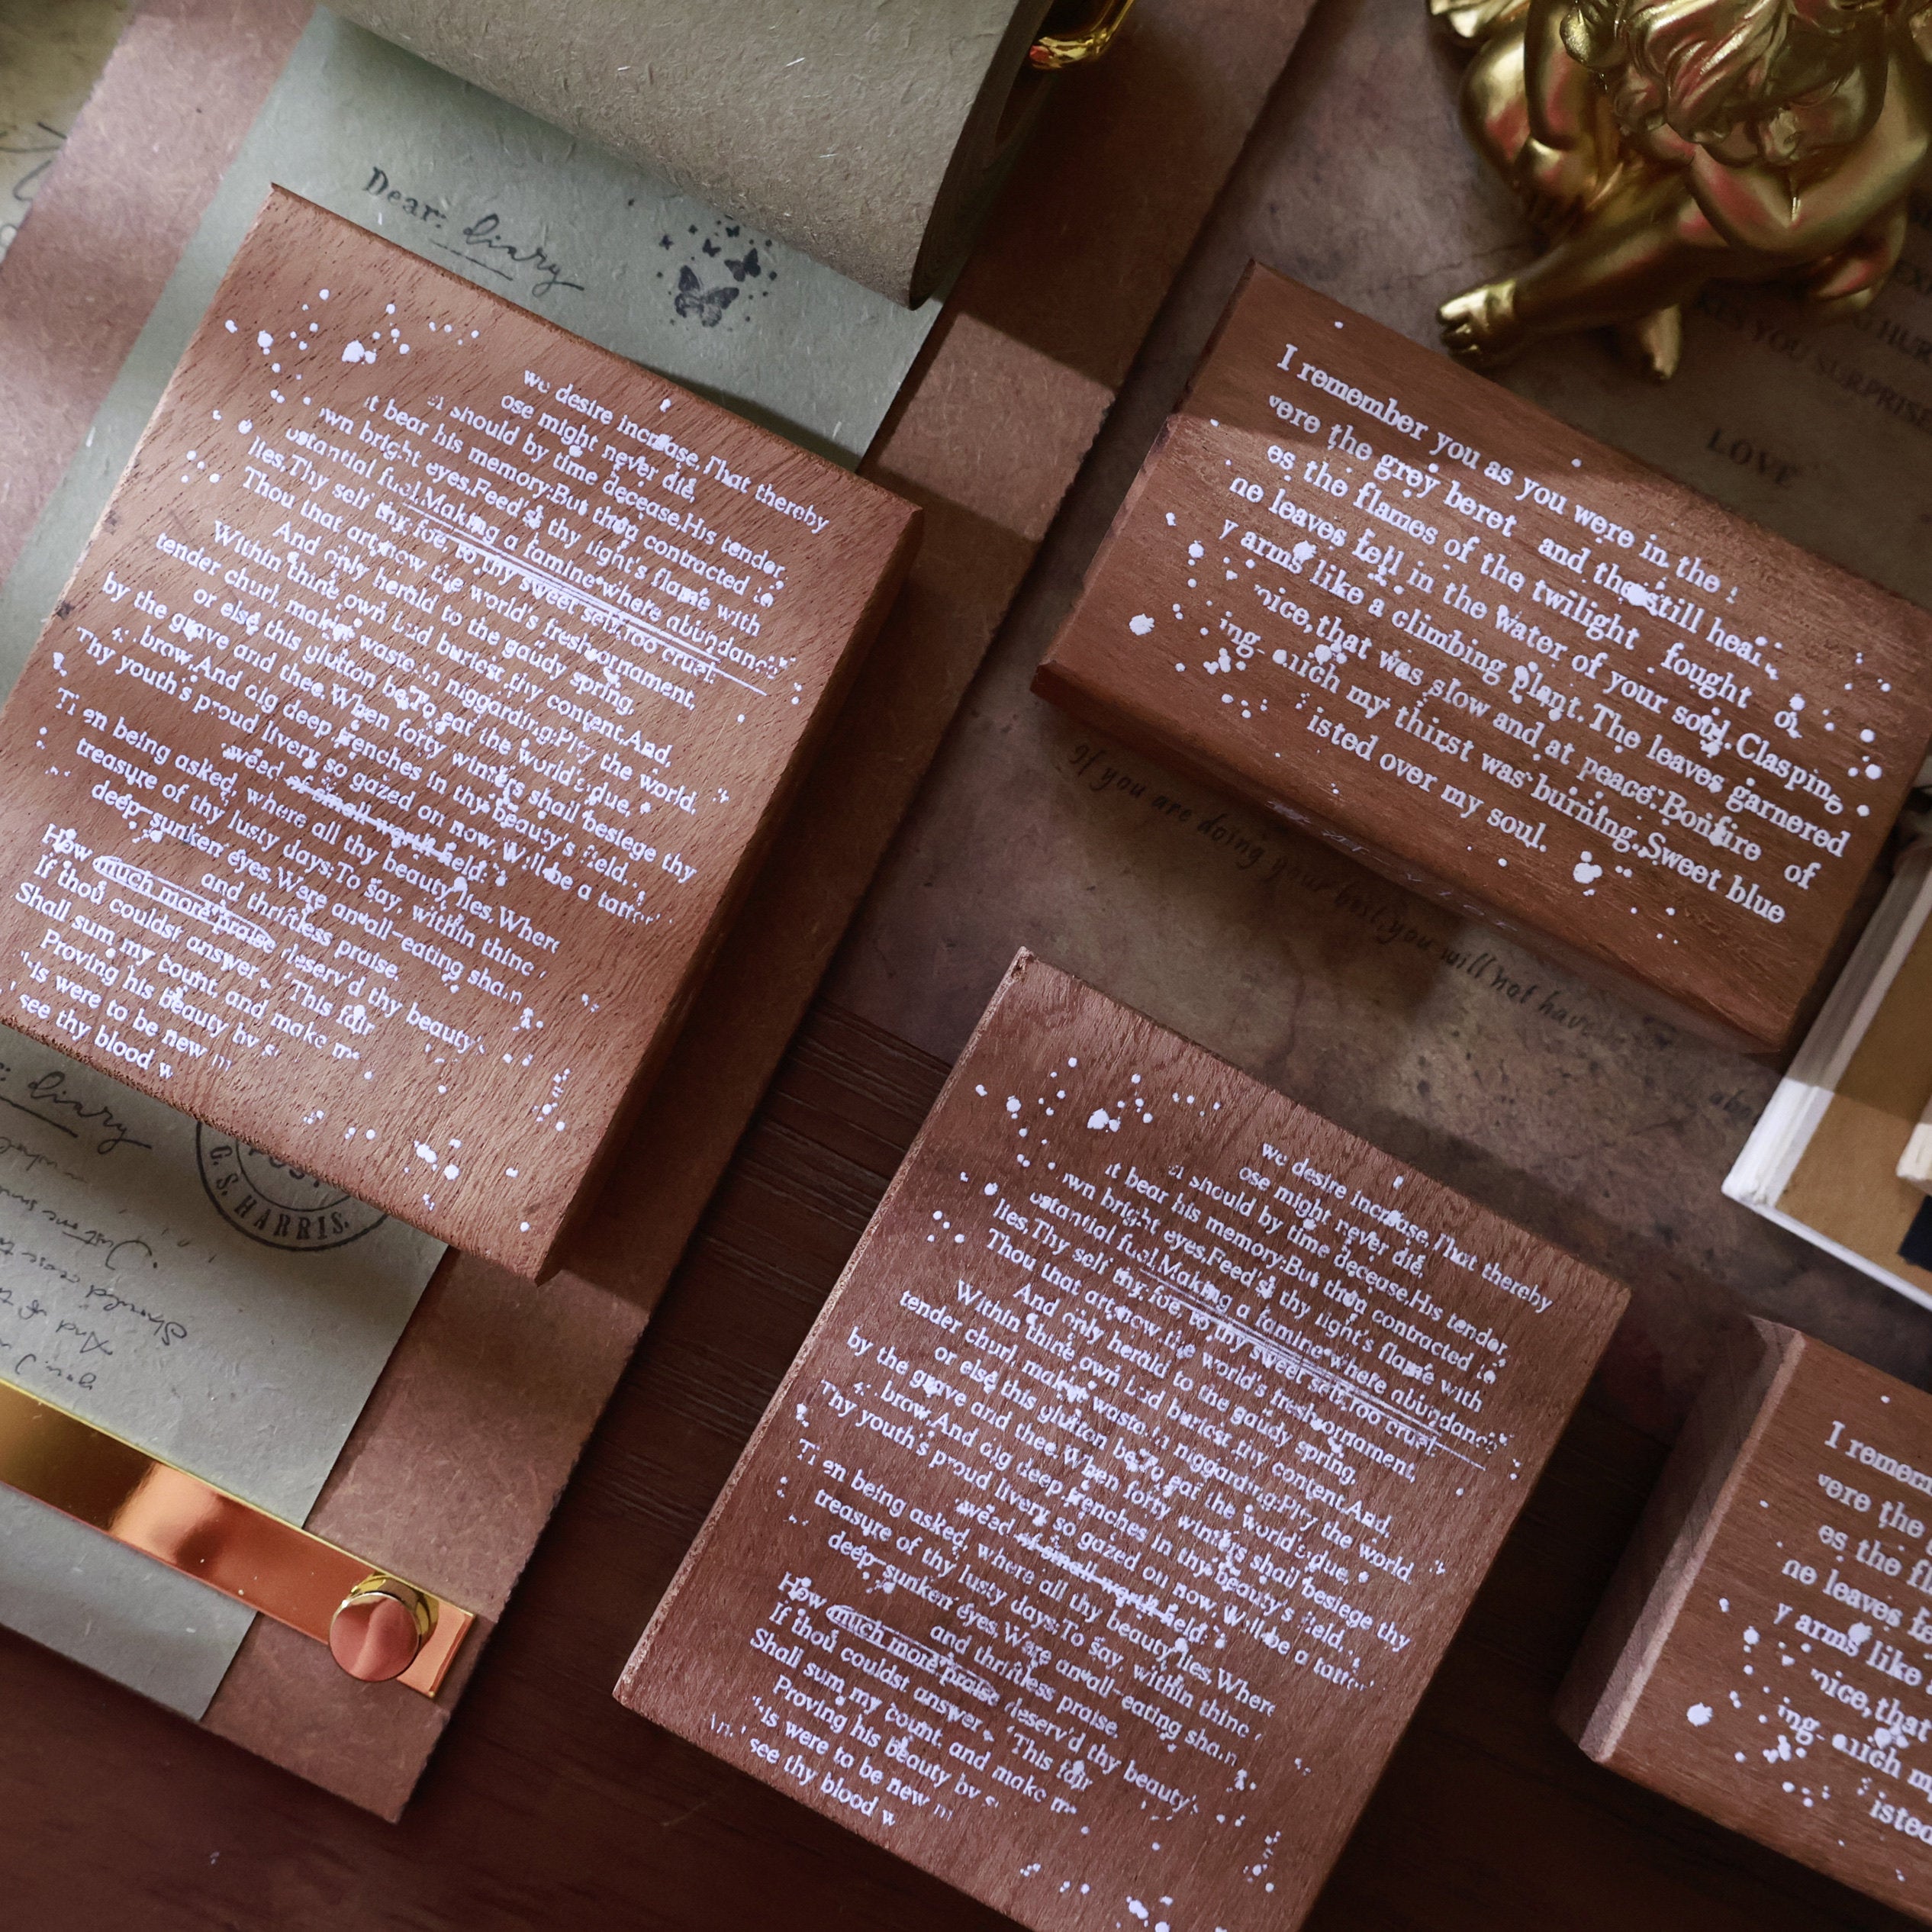 Dear: diary
we desire increase, That thereby
ose might never die,
should by time decease, His tender
it bear his memory: But thou contracted
wn bright eyes, Feed'st thy light's flame with
ustantial fuel, Making a famine where abundanc
lies, Thy self thy foe, to thy sweet self too cruel:
Thou that art now the world's fresh ornament,
And only herald to the gaudy spring,
Within thine own bud buriest thy content, And,
tender churl, mak'st waste in niggarding: Pity the world,
or else this glutton be, To eat the world's due,
by the grave and thee. When forty winters shall besiege thy
brow, And dig deep trenches in thy beauty's field,
hy youth's proud livery so gazed on now, Will be a tatt
weed of small worth held:
Then being asked, where all thy beauty lies, Where
treasure of thy lusty days; To say, within thine
deep sunken eyes, Were an all-eating sham
and thriftless praise.
How much more praise deserv'd thy beauty's
If thou couldst answer 'This fair
Shall sum my count, and make m
Proving his beauty by s
is were to be new m
see thy blood w
diary
G. S. HARRIS.
Just
Should
And
I remember you as you were in the
vere the grey beret and the still hear
es the flames of the twilight fought
ne leaves fell in the water of your soul. Clasping
y arms like a climbing plant. The leaves garnered
oice, that was slow and at peace: Bonfire of
ing which my thirst was burning. Sweet blue
isted over my soul.
LOVE
If you are doing your best, you will not have
we desire increase, That thereby
ose might never die,
should by time decease, His tender
it bear his memory: But thou contracted
wn bright eyes, Feed'st thy light's flame with
ustantial fuel, Making a famine where abundanc
lies, Thy self thy foe, to thy sweet self too cruel:
Thou that art now the world's fresh ornament,
And only herald to the gaudy spring,
Within thine own bud buriest thy content, And,
tender churl, mak'st waste in niggarding: Pity the world,
or else this glutton be, To eat the world's due,
by the grave and thee. When forty winters shall besiege thy
brow, And dig deep trenches in thy beauty's field,
hy youth's proud livery so gazed on now, Will be a tatt
weed of small worth held:
Then being asked, where all thy beauty lies, Where
treasure of thy lusty days; To say, within thine
deep sunken eyes, Were an all-eating sham
and thriftless praise.
How much more praise deserv'd thy beauty's
If thou couldst answer 'This fair
Shall sum my count, and make m
Proving his beauty by s
is were to be new m
see thy blood w
I remem
vere the
es the fl
ne leaves f
y arms like
oice, that
ing which m
isted